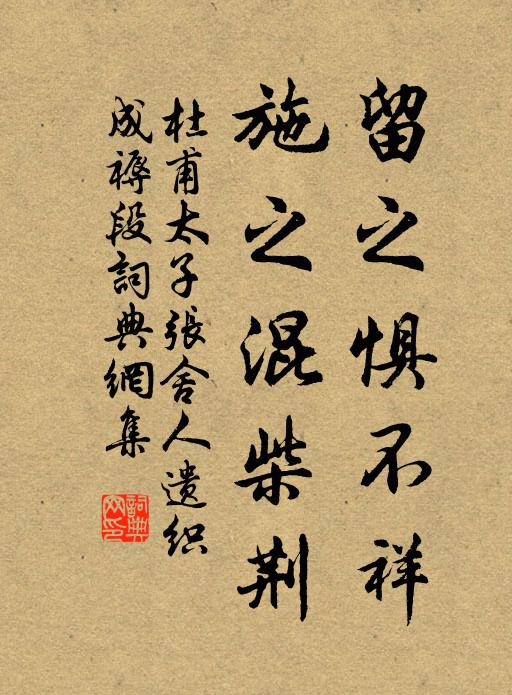 留之惧不祥
施之混柴荆
杜甫太子張舍人遗织
成褥段詞典網集
詞典
网印